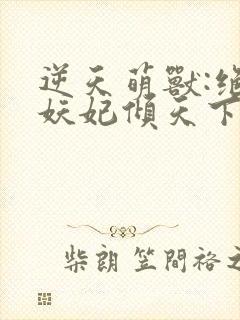 逆天萌獸:绝
妖妃傾天下
柴朗 笠間裕之